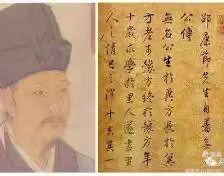 邵康節先生自著無名
公傳
無名公生於冀方長於冀
方老於豫方終於豫方年
十歲求學於里人遂盡里
人之情己之滓十去其一